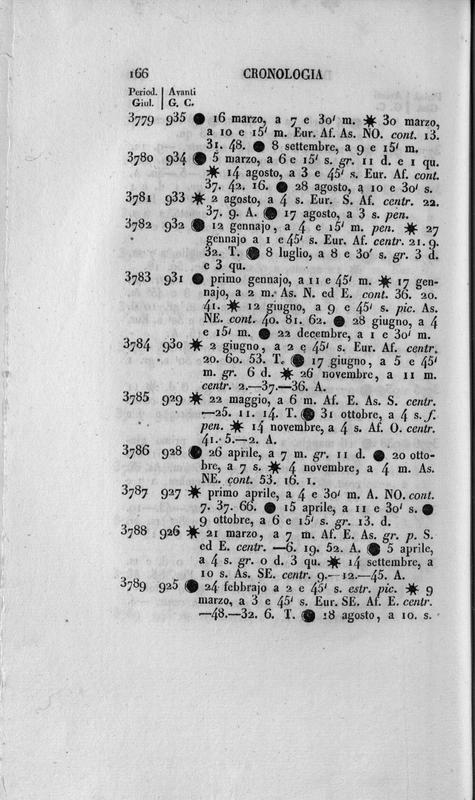 166 CRONOLOGIA
Period. | Avanti
Giul. | G. C.
3779 935 ● 16 marzo, a 7 e 30' m. ✷ 30 marzo,
a 10 e 15' m. Eur. Af. As. NO. cont. 13.
31. 48. ● 8 settembre, a 9 e 15' m.
3780 934 (● 5 marzo, a 6 e 15' s. gr. 11 d. e 1 qu.
✷ 14 agosto, a 3 e 45' s. Eur. Af. cont.
37. 42. 16. ● 28 agosto, a 10 e 30' s.
3781 933 ✷ 2 agosto, a 4 s. Eur. S. Af. centr. 22.
37. 9. A. (● 17 agosto, a 3 s. pen.
3782 932 (● 12 gennajo, a 4 e 15' m. pen. ✷ 27
gennajo a 1 e 45' s. Eur. Af. centr. 21. 9.
32. T. (● 8 luglio, a 8 e 30' s. gr. 3 d.
e 3 qu.
3783 931 ● primo gennajo, a 11 e 45' m. ✷ 17 gen-
najo, a 2 m. As. N. ed E. cont. 36. 20.
41. ✷ 12 giugno, a 9 e 45' s. pic. As.
NE. cont. 40. 81. 62. ● 28 giugno, a 4
e 15' m. ● 22 decembre, a 1 e 30' m.
3784 930 ✷ 2 giugno, a 2 e 45' s. Eur. Af. centr.
20. 60. 53. T. (● 17 giugno, a 5 e 45'
m. gr. 6 d. ✷ 26 novembre, a 11 m.
centr. 2.—37.—36. A.
3785 929 ✷ 22 maggio, a 6 m. Af. E. As. S. centr.
—25. 11. 14. T. (● 31 ottobre, a 4 s. f.
pen. ✷ 14 novembre, a 4 s. Af. O. centr.
41. 5.—2. A.
3786 928 (● 26 aprile, a 7 m. gr. 11 d. ● 20 otto-
bre, a 7 s. ✷ 4 novembre, a 4 m. As.
NE. cont. 53. 16. 1.
3787 927 ✷ primo aprile, a 4 e 30' m. A. NO. cont.
7. 37. 66. ● 15 aprile, a 11 e 30' s. ●
9 ottobre, a 6 e 15' s. gr. 13. d.
3788 926 ✷ 21 marzo, a 7 m. Af. E. As. gr. p. S.
ed E. centr. —6. 19. 52. A. (● 5 aprile,
a 4 s. gr. 0 d. 3 qu. ✷ 14 settembre, a
10 s. As. SE. centr. 9.—12.—45. A.
3789 925 (● 24 febbrajo a 2 e 45' s. estr. pic. ✷ 9
marzo, a 3 e 45' s. Eur. SE. Af. E. centr.
—48.—32. 6. T. (● 18 agosto, a 10. s.